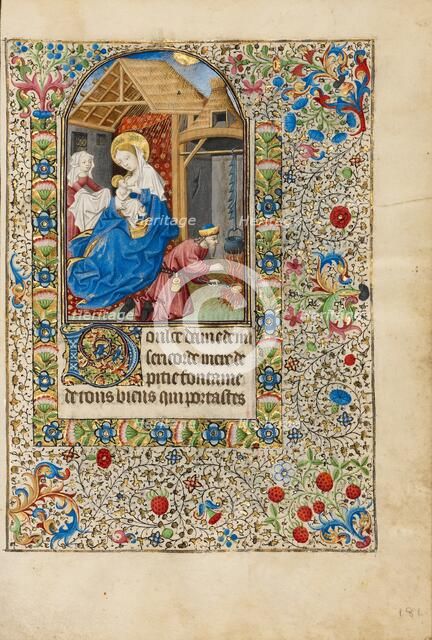 Doulce dame de mi
sericorde mere de
pitie fontaine
de tous biens qui portastes
181
Heritage Images